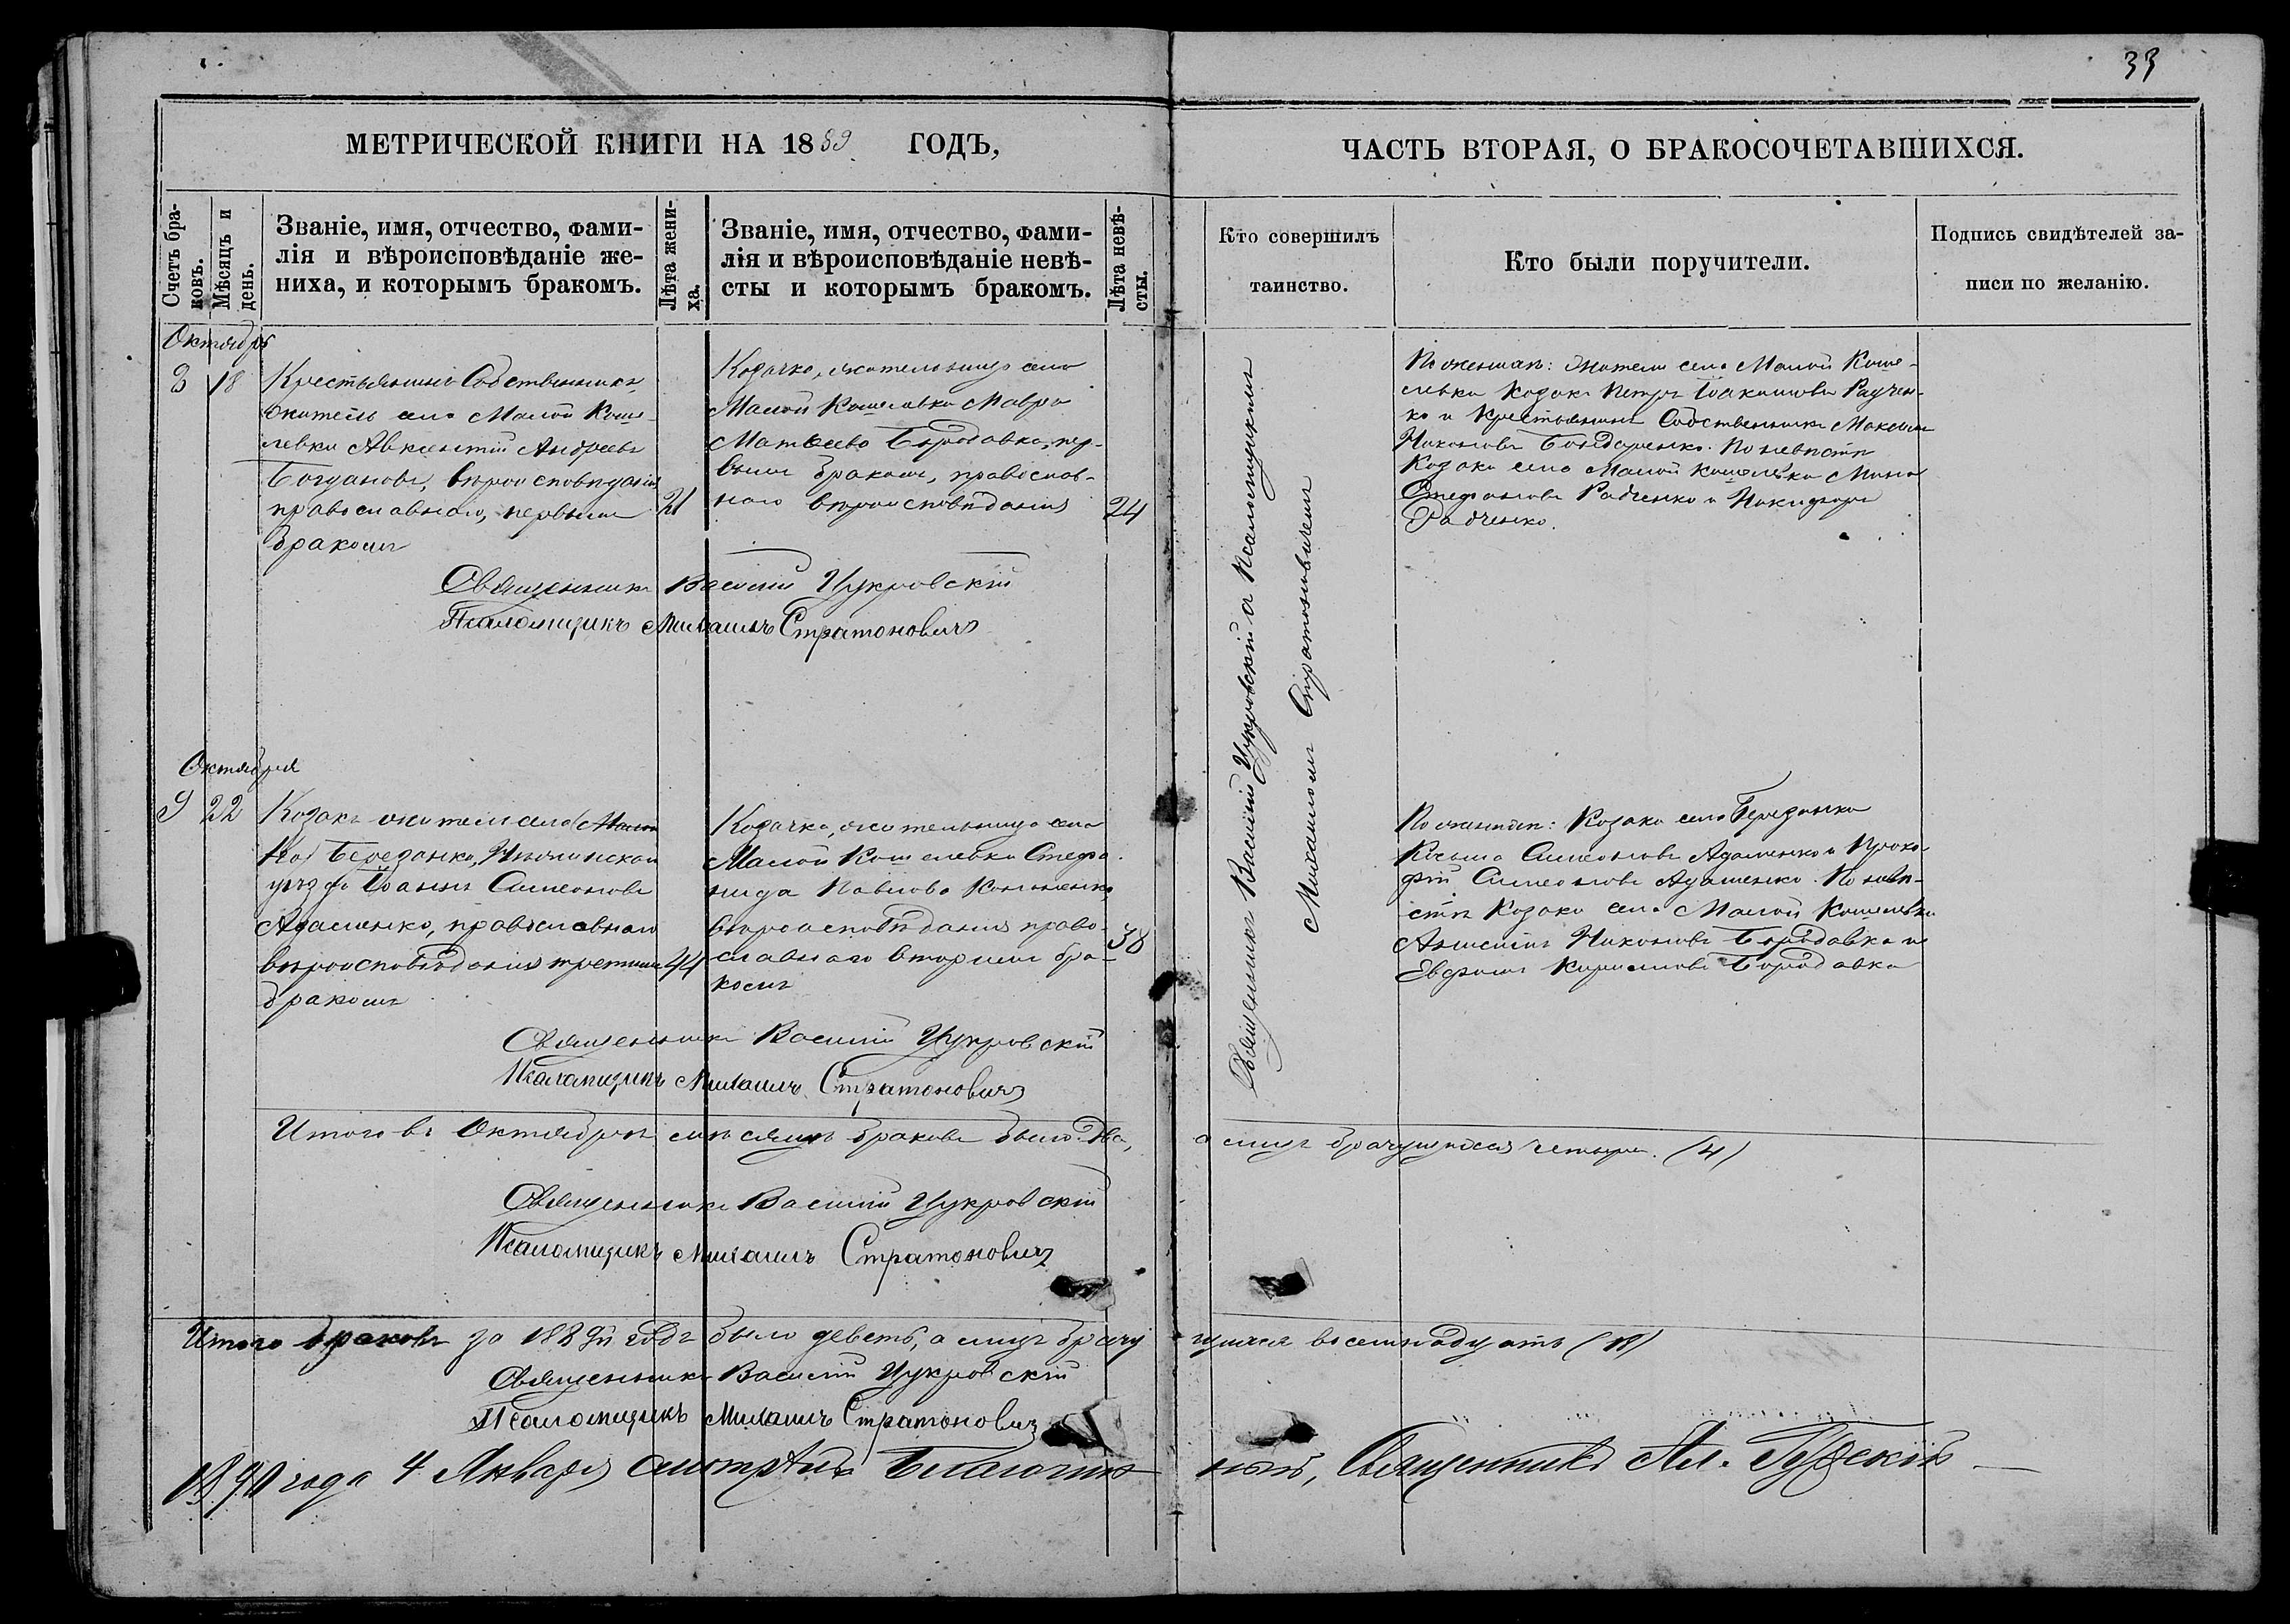 33
МЕТРИЧЕСКОЙ КНИГИ НА 1889 ГОДЪ,
ЧАСТЬ ВТОРАЯ, О БРАКОСОЧЕТАВШИХСЯ.
Счетъ бра-
ковъ.
Мѣсяцъ и
день.
Званіе, имя, отчество, фами-
лія и вѣроисповѣданіе же-
ниха, и которымъ бракомъ.
Лѣта жени-
ха.
Званіе, имя, отчество, фами-
лія и вѣроисповѣданіе невѣ-
сты и которымъ бракомъ.
Лѣта невѣ-
сты.
Кто совершилъ
таинство.
Кто были поручители.
Подпись свидѣтелей за-
писи по желанію.
Октября
8 18
Крестьянинъ Собственникъ,
житель села Малой Коше-
левки Авксентій Андреевъ
Богдановъ, вѣроисповѣданія
православнаго, первымъ
бракомъ
21
Козачка, жительница села
Малой Кошелевки Мавра
Матвѣева Бородавка, пер-
вымъ бракомъ, православ-
наго вѣроисповѣданія
24
Священникъ Василій Цукровскій
Псаломщикъ Михаилъ Стратоновичъ
Священникъ Василій Цукровскій с Псаломщикомъ
Михаиломъ Стратоновичемъ
По женихѣ: жители села Малой Коше-
левки Козакъ Петръ Іоакимовъ Радчен-
ко и Крестьянинъ Собственникъ Максимъ
Никоновъ Бондаренко. По невѣстѣ
Козаки села Малой Кошелевки Мина
Стефановъ Радченко и Никифоръ
Радченко.
Октября
9 22
Козакъ житель села
Березанки, Нѣжинскаго
уѣзда Іоаннъ Симеоновъ
Адаменко, православнаго
вѣроисповѣданія третьимъ
бракомъ
44
Козачка, жительница села
Малой Кошелевки Стефа-
нида Павлова
вѣроисповѣданія право-
славнаго вторымъ бра-
комъ
38
По женихѣ: Козаки села Березанки
Косьма Симеоновъ Адаменко и Проко-
фій Симеоновъ Адаменко. По невѣ-
стѣ Козаки села Малой Кошелевки
Никоновъ Бородавка и
Евфимъ Кирилловъ Бородавка
Священникъ Василій Цукровскій
Псаломщикъ Михаилъ Стратоновичъ
Итого въ Октябрѣ мѣсяцѣ браковъ было два, а лицъ брачущихся четыре. (4)
Священникъ Василій Цукровскій
Псаломщикъ Михаилъ Стратоновичъ
Итого браковъ за 1889й годъ было девять, а лицъ брачу щихся восемнадцать (18)
Священникъ Василій Цукровскій
Псаломщикъ Михаилъ Стратоновичъ
1890 года 4 Января смотрѣлъ Благочин ный, Священникъ Ал.